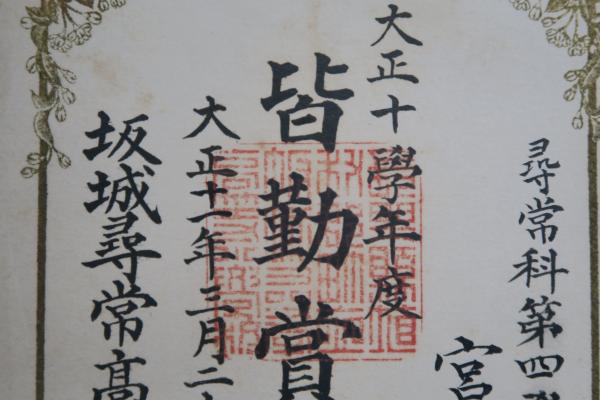 尋常科第四
宮
大正十學年度
皆勤賞
大正十一年三月二十
坂城尋常高